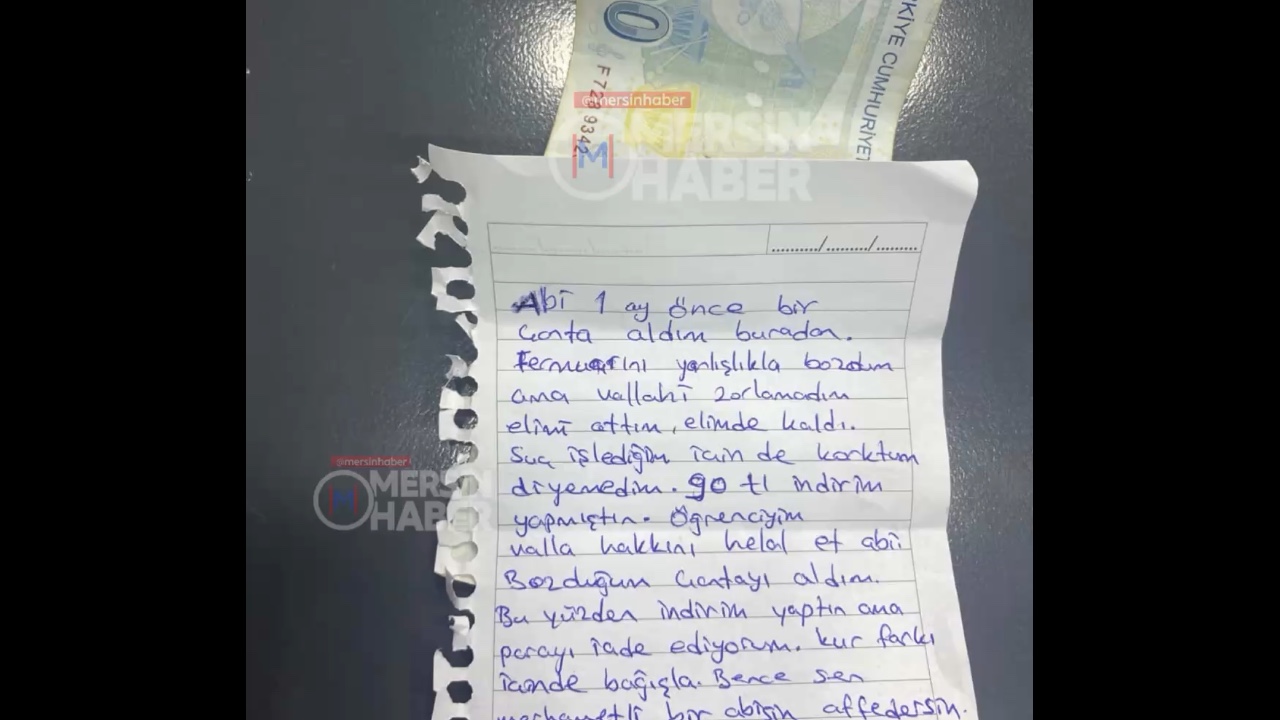 0
F728 9342
TÜRKİYE CUMHURİYET
@mersinhaber
MERSİN
HABER
M
........./......../.........
Abi 1 ay önce bir
Çanta aldım buradan.
Fermuarını yanlışlıkla bozdum
ama vallahi zorlamadım
elimi attım, elimde kaldı.
Suç işlediğim için de korktum
diyemedim. 90 tl indirim
yapmıştın. Öğrenciyim
valla hakkını helal et abi.
Bozduğum Çantayı aldım.
Bu yüzden indirim yaptın ama
parayı iade ediyorum. kur farkı
içinde bağışla. Bence sen
merhametli bir abisin affedersin.
@mersinhaber
M
MERSİN
HABER